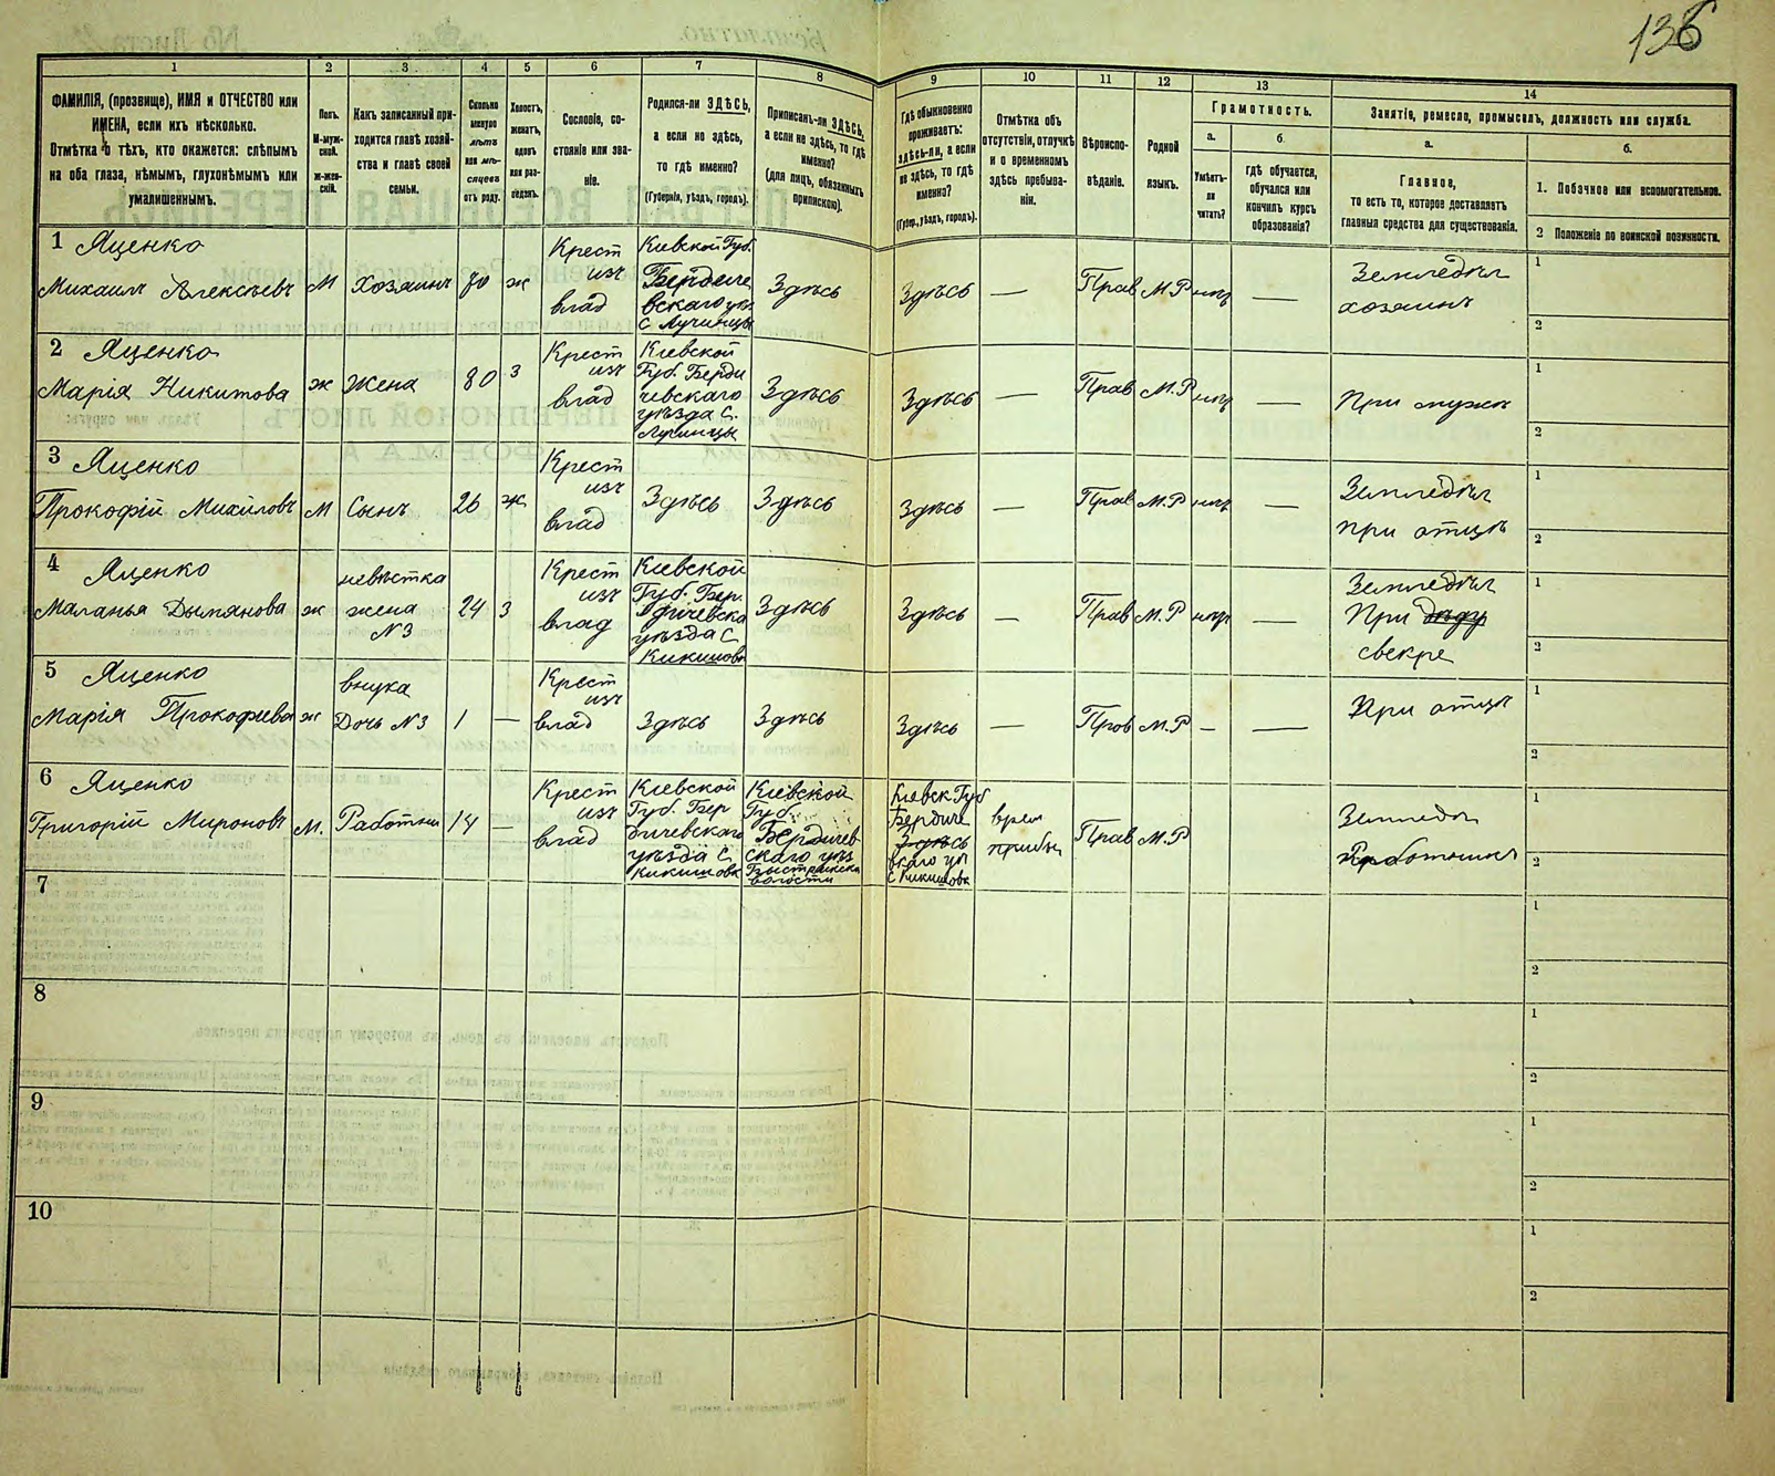 136
1 2 3 4 5 6 7 8 9 10 11 12 13 14
ФАМИЛІЯ, (прозвище), ИМЯ и ОТЧЕСТВО или
ИМЕНА, если ихъ нѣсколько.
Отмѣтка о тѣхъ, кто окажется: слѣпымъ
на оба глаза, нѣмымъ, глухонѣмымъ или
умалишеннымъ.
Полъ.
М-муж-
ской.
ж-жен-
скій.
Какъ записанный при-
ходится главѣ хозяй-
ства и главѣ своей
семьи.
Сколько
минуло
лѣтъ
или мѣ-
сяцевъ
отъ роду.
Холостъ,
женатъ,
вдовъ
или раз-
веденъ.
Сословіе, со-
стояніе или зва-
ніе.
Родился-ли ЗДѢСЬ,
а если не здѣсь,
то гдѣ именно?
(Губернія, уѣздъ, городъ).
Приписанъ-ли ЗДѢСЬ,
а если не здѣсь, то гдѣ
именно?
(для лицъ, обязанныхъ
припискою).
Гдѣ обыкновенно
проживаетъ:
здѣсь-ли, а если
не здѣсь, то гдѣ
именно?
(Губер., уѣздъ, городъ).
Отмѣтка объ
отсутствіи, отлучкѣ
и о временномъ
здѣсь пребыва-
ніи.
Вѣроиспо-
вѣданіе.
Родной
языкъ.
Грамотность.
а. б.
Умѣетъ-
ли
читать?
гдѣ обучается,
обучался или
кончилъ курсъ
образованія?
Занятіе, ремесло, промыселъ, должность или служба.
а. б.
Главное,
то есть то, которое доставляетъ
главныя средства для существованія.
1. Побочное или вспомогательное.
2 Положеніе по воинской повинности.
1 Яценко
Михаилъ Алексѣевъ
М
Хозяинъ
70
ж
Крест
изъ
влад
Кіевской Губ.
Бердиче
вскаго уѣз
с Лучинцы
Здѣсь
Здѣсь
—
Прав
М.Р
нѣт
—
Земледѣл
хозяинъ
1
2
2 Яценко
Марія Никитова
ж
Жена
80
З
Крест
изъ
влад
Кіевской
Губ. Берди
чевскаго
уѣзда С.
Лучинцы
Здѣсь
Здѣсь
—
Прав
М.Р
нѣт
—
При мужѣ
1
2
3 Яценко
Прокофій Михайловъ
М
Сынъ
26
ж
Крест
изъ
влад
Здѣсь
Здѣсь
Здѣсь
—
Прав
М.Р
нѣт
—
Земледѣл
При отцѣ
1
2
4 Яценко
Маланья Дымянова
ж
невѣстка
жена
№3
24
З
Крест
изъ
влад
Кіевской
Губ. Бер.
дичевска
уѣзда С
Кикишовк
Здѣсь
Здѣсь
—
Прав
М.Р
нѣт
—
Земледѣл
При дѣду
свекре
1
2
5 Яценко
Марія Прокофиева
ж
внука
Дочь №3
1
—
Крест
изъ
влад
Здѣсь
Здѣсь
Здѣсь
—
Прав
М.Р
—
—
При отцѣ
1
2
6 Яценко
Григорій Мироновъ
М.
Работни
14
—
Крест
изъ
влад
Кіевской
Губ. Бер
дичевскаго
уѣзда С
Кикишовк
Кіевской
Губ.
Бердичев
скаго уѣз
волости
Кіевск Губ
Бердиче
Здѣсь
вскаго уѣ
С Кикишовк
врем
прибы
Прав
М.Р
Земледѣл
Работникъ
1
2
7
1
2
8
1
2
9
1
2
10
1
2